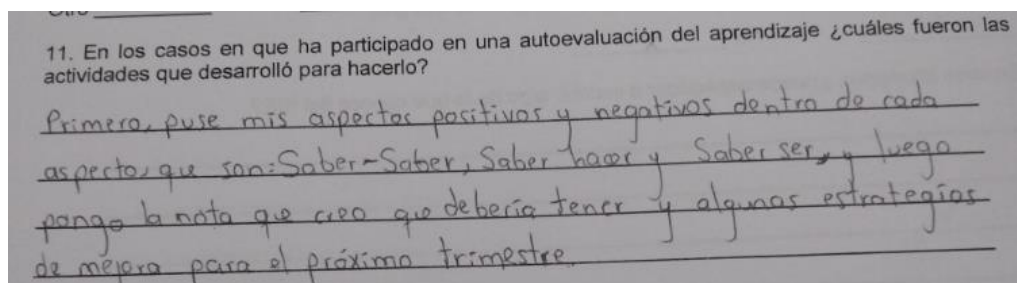 11. En los casos en que ha participado en una autoevaluación del aprendizaje ¿cuáles fueron las
actividades que desarrolló para hacerlo?
Primero, puse mis aspectos positivos y negativos dentro de cada
aspecto, que son: Saber-Saber, Saber hacer y Saber ser, y luego
pongo la nota que creo que debería tener y algunas estrategias
de mejora para el próximo trimestre.